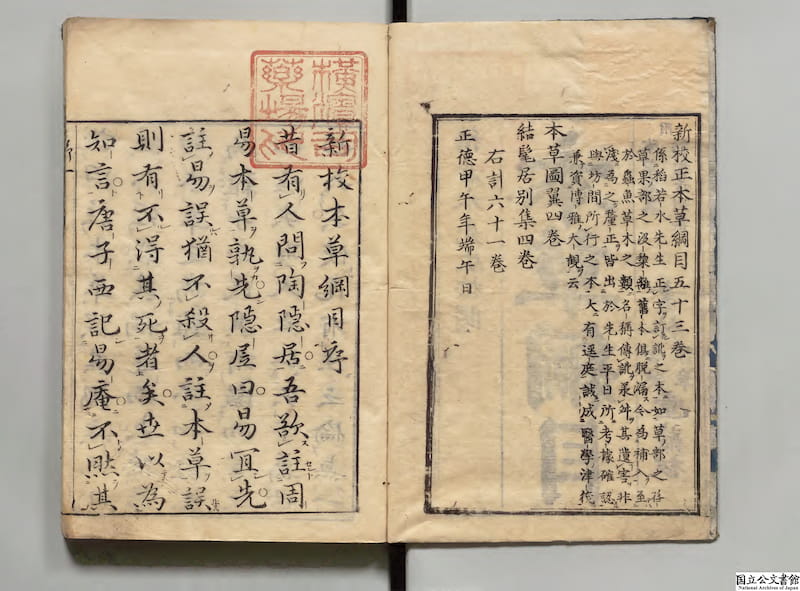 新校正本草綱目五十三巻
係稻若水先生正字訂訛之本如草部之
草果部之沒 舊本俱脫漏今為補入至
於龜魚草木之類名稱傳訛承舛其遺害非
淺為之釐正皆出於先生平日所考據確認
與坊間所行之本大有逕庭誠成醫學津筏
兼資博雅大觀云
本草圖翼四巻
結髦居別集四巻
右計六十一巻
正德甲午年端午日
橫濱司藥場印
新校本草綱目序
昔有人問陶隱居吾欲註周
易本草孰先隱居曰易冝先
註易誤猶不殺人註本草誤
則有不得其死者矣世以為
知言唐子西記易庵不然其
序一
国立公文書館
National Archives of Japan